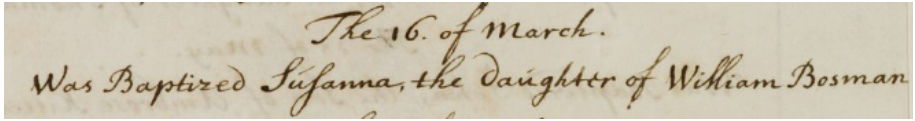 The 16. of March.
Was Baptized Susanna, the daughter of William Bosman